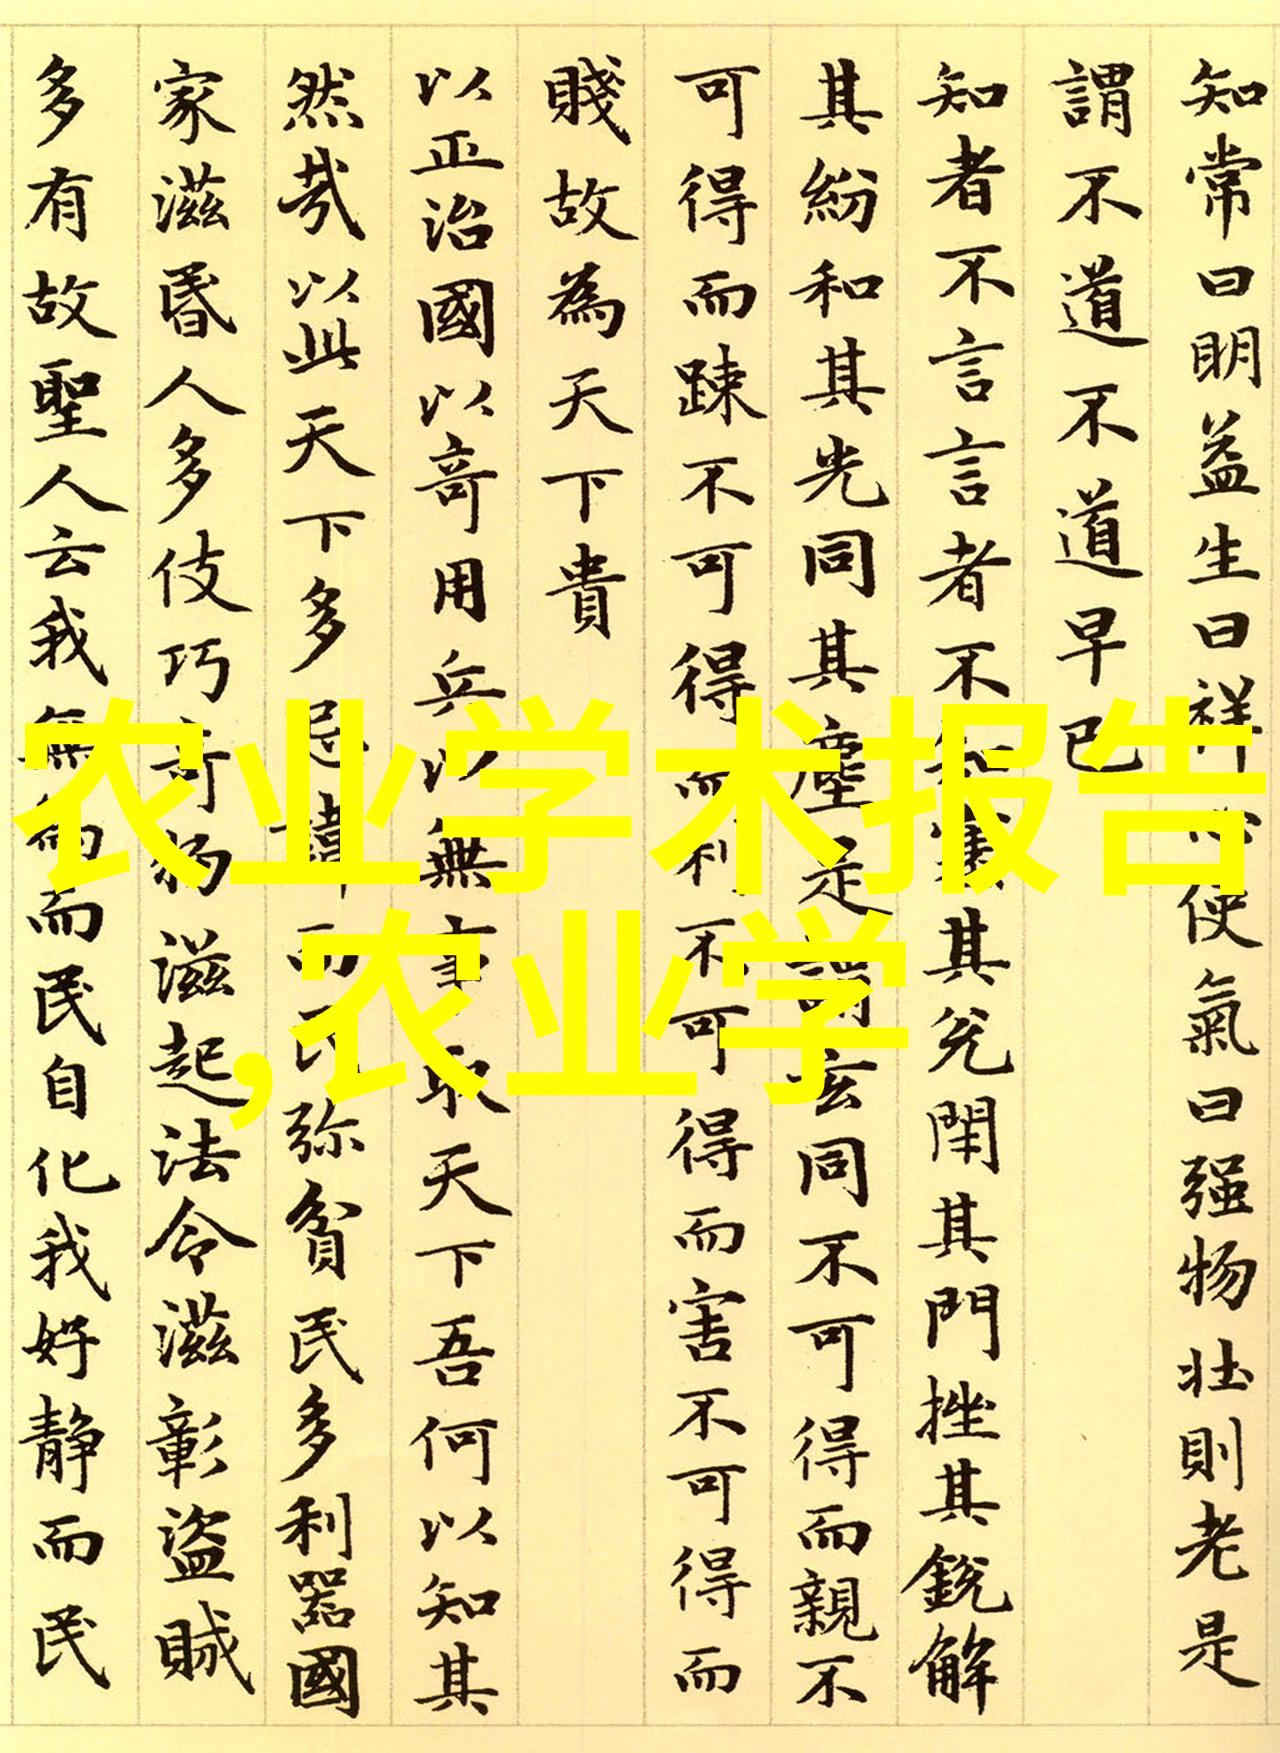 知常曰明益生曰祥心使氣曰强物壯則老是
謂不道不道早已
知者不言言者不知塞其兌閇其門挫其銳解
其紛和其光同其塵是謂玄同不可得而親不
可得而踈不可得而利不可得而害不可得而
賤故為天下貴
以正治國以竒用兵以無事取天下吾何以知其
然哉以此天下多忌諱而民弥貧民多利器國
家滋昬人多伎巧奇物滋起法令滋彰盜賊
多有故聖人云我無為而民自化我好静而民
农业学术报告
,农业学